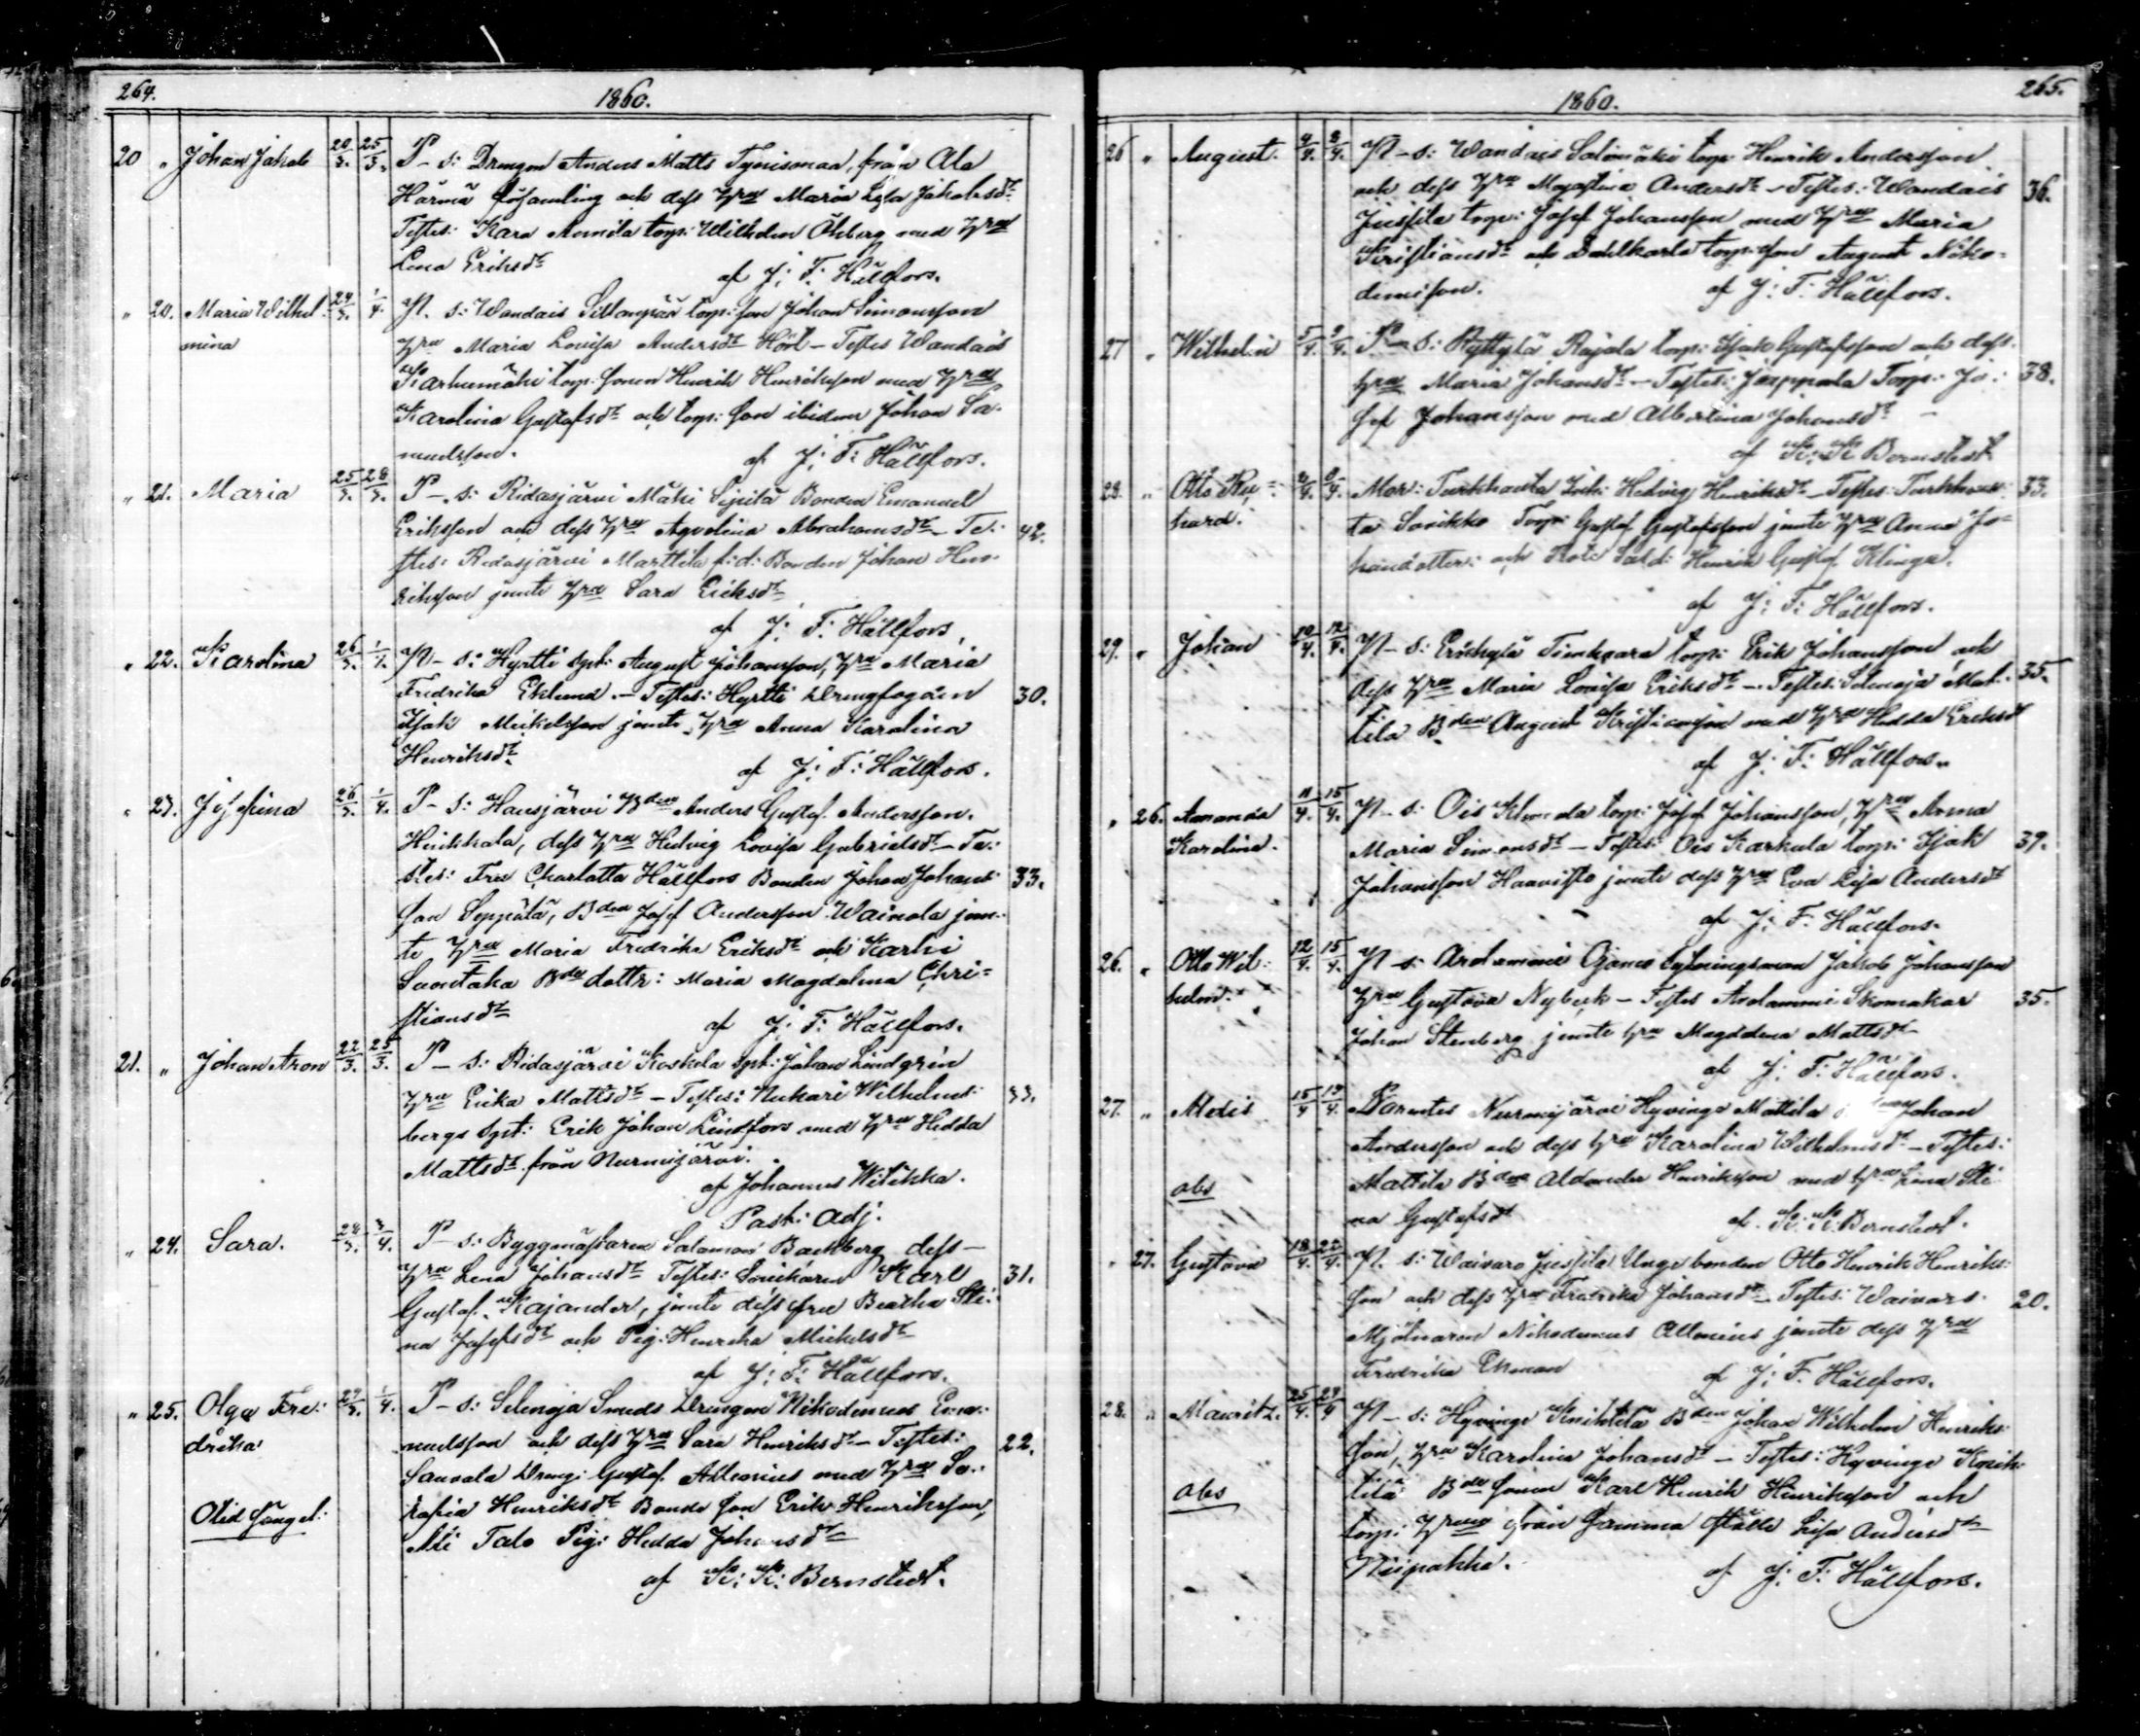 264.
1860.
20 " Johan Jakob 20/3. 25/3. P – s: Drengen Anders Matts Tyrisomaa, från Ala
Härmä församling och dess Hru Maria Lisa Jakobsdr
Testes: Kara Annila torp: Wilhelm Öhberg med Hru
Lena Eriksdr
af J: F: Hällfors.
" 20. Maria Wilhel- 1/4. P. s: Wandais Sillanpää torp: son Johan Simonsson
mina Hru Maria Lovisa Andersdr Hörl – Testes Wandais
Karhumäki torp. sonen Henrik Henriksson med Hru
Karolina Gustafsdr och torp: son ibidem Johan Sa-
muelsson.
af J: F: Hällfors.
" 21. Maria 25/3. 28/3. P – s: Ridasjärvi Mäki Sipilä Bonden Emanuel
Eriksson och dess Hru Abrahamsdr – Te- 42.
stes: Ridasjärvi Marttila f: d: Bonden Johan Hen-
riksson jemte Hru Sara Eriksdr
af J: F: Hällfors.
" 22. Karolina 26/3. P – s: Hyrtti August Johansson, Hru Maria
Fredrika Eklund. – Testes: Hyrtti Drengfogden 30.
Isak Mickelsson jemte Hru Anna Karolina
Henriksdr
af J: F: Hällfors.
" 23. Josefina 26/3. 1/4. P – s: Hausjärvi Bden Anders Gustaf Andersson
Heikkala, dess Hru Hedvig Lovisa Gabrielsdr – Te-
stes: Fru Charlotta Hällfors Bonden Johan Johans- 33.
son Seppälä, Bden Josef Andersson Wainola jem-
te Hru Maria Fredrika Eriksdr och Karhi
Santaka Bde dottr: Maria Magdalena Chri-
stiansdr
af J: F: Hällfors.
21. " Johan Aron 22/3. 25/3. P – s: Ridasjärvi Koskela Johan Lindgrén
Hru Erika Mattsdr – Testes: Nukari Wilhelms- 33.
bergs Erik Johan Lindfors med Hru Hedda
Mattsdr från Nurmijärvi.
af Johannes Wilikka.
Past: Adj.
" 24. Sara. 28/3. P – s: Byggmästaren Salomon Backberg dess –
Hru Lena Johansdr Testes: Karl 31.
Gustaf Kajander, jemte dess fru Beatha Sti-
na Josefsdr och Pig: Henrika Mickelsdr
af J: F: Hällfors.
" 25. Olga Fre- 29/3. 1/4. P – s: Selenoja Smeds Drengen Nikodemus Ema-
drika nuelsson och dess Hru Sara Henriksdr – Testes: 22.
Sauvala Dreng: Gustaf Allenius med Hru So-
Oäkta fångel: fia Henriksdr Bonde son Erik Henriksson,
Ali Talo Pig: Hedda Johansdr
af K: K: Bernstedt.
265.
1860.
26 " August. 4/4. 8/4. P – s: Wandais Salomäki torp: Henrik Andersson
och dess Hru Majastina Andersdr – Testes: Wandais 36.
Jussila torp: Josef Johansson med Hru Maria
Kristiansdr och Dahlkarla torp: son August Niko-
demisson.
af J: F: Hällfors.
27 " Wilhelm 5/4. 9/4. P – s: Ryttylä Rajala torp: Isak Gustafsson och dess
Hru Maria Johansdr – Testes: Jaappala Torp: Jo- 38.
sef Johansson med Albertina Johansdr –
af K: K: Bernstedt.
28. " Otto Rik- Mor: Turkhauta Inh: Hedvig Henriksdr – Testes: Turkhau- 33.
hard. ta Sorikko Torp: Gustaf Gustafsson jemte Hru Anna Jo-
hansdotter: och Rote Sold: Henrik Gustaf Klinga.
af J: F: Hällfors.
29. " Johan 10/4. 12/4. P – s: Erkylä Timkaara torp: Erik Johansson och
dess Hru Maria Lovisa Eriksdr – Testes: Selenoja Mat- 35.
tila Bden August Kristiansson med Hru Hedda Eriksdr
af J: F: Hällfors.
" 26. Amanda 11/4. 15/4. P – s: Ois torp: Josef Johansson, Hru Anna
Karolina. Maria Simonsdr – Testes: Ois Karkula torp: Isak 39.
Johansson Haavisto jemte dess Hru Eva Lisa Andersdr
af J: F: Hällfors.
26. " Otto Wil- 12/4. 15/4. P – s: Arolammi Ojanen Jakob Johansson
helm. Hru Gustava Nybeck – Testes Arolammi Skomakar 35.
Johan Stenberg jemte hru Magdalena Mattsdr
af J: F: Hällfors.
27. " Alexis 15/4 17/4. Parentes Nurmijärvi Hyvinge Mattila Johan
Andersson och dess hru Karolina Wilhelmsdr – Testes:
abs Mattila Bden Alexander Henriksson med hru Lena Sti-
na Gustafsdr
af K: K: Bernstedt.
" 27. Gustava 18/4. 22/4. P. s: Waivaro Jussila Unge bonden Otto Henrik Henriks-
son och dess Hru Fredrika Johansdr – Testes: Waivaro 20.
Mjölnaren Nikodemus Allenius jemte dess Hru
Fredrika Ekman
af J: F. Hällfors.
28. " Mauritz. 25/4. 29/4 P – s: Hyvinge Knihtilä Bden Johan Wilhelm Henriks-
son, Hru Karolina Johansdr – Testes: Hyvinge Knih-
abs tilä Bde sonen Karl Henrik Henriksson och
torp: Hru från samma ställe Lisa Andersdr
Niipakka.
af J: F: Hällfors.